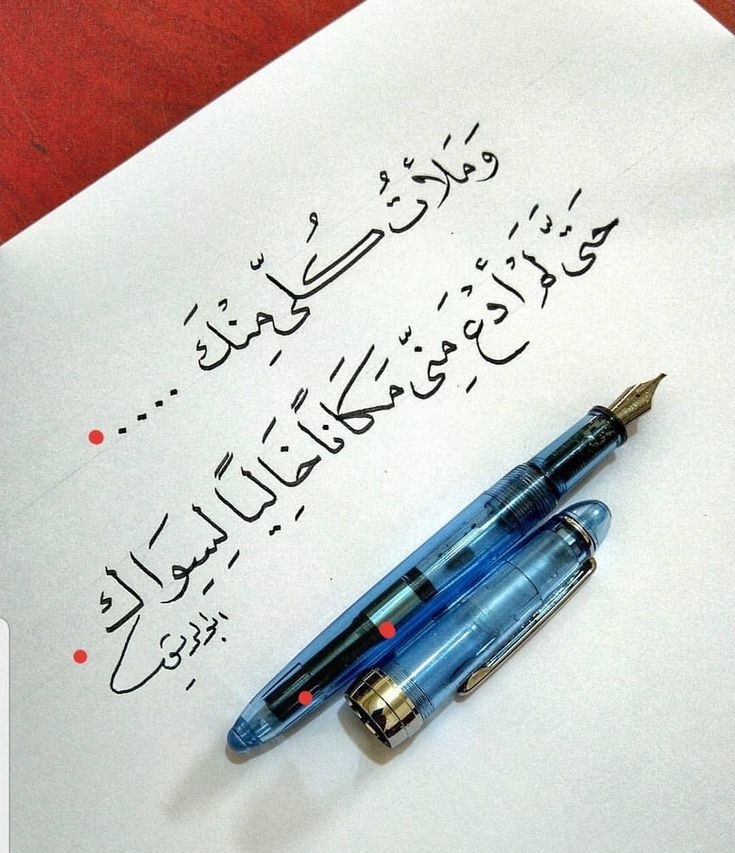 وَمَلأتُ كُلّي مِنْكَ ....
حَتَّى لَمْ أَدَعْ مِنّي مَكَانًا خَاليًا لِسِوَاك